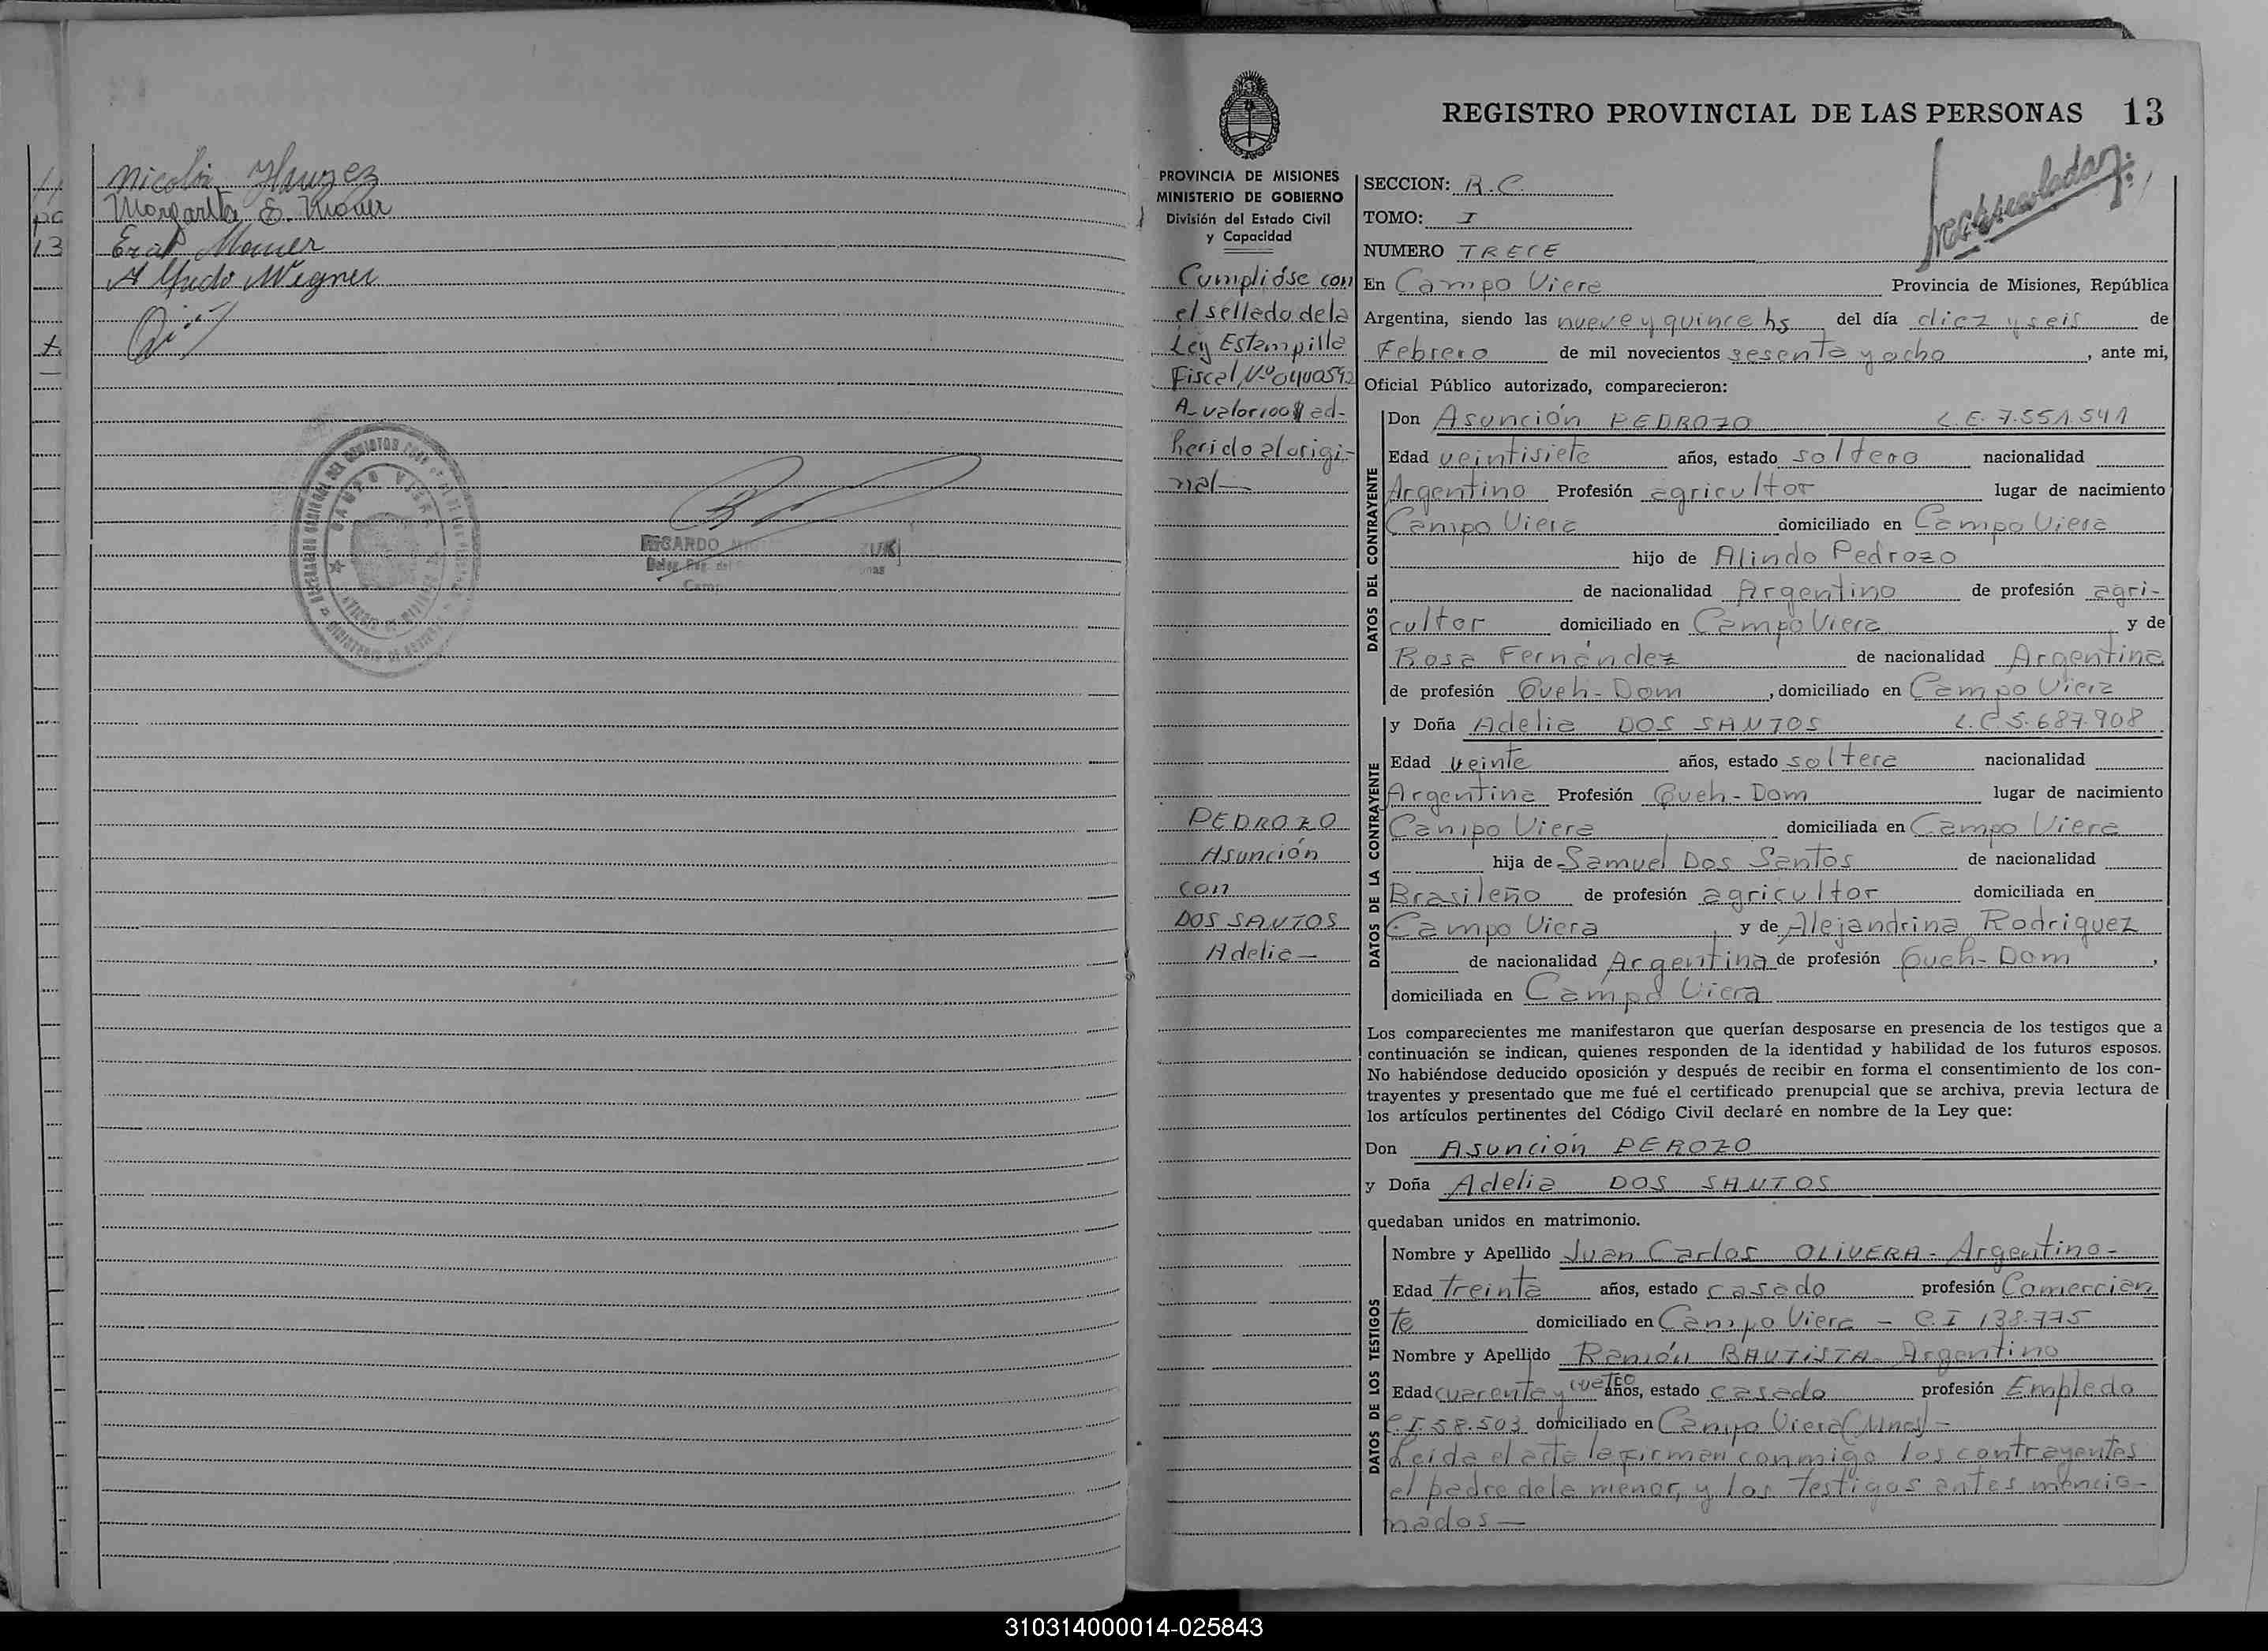 Margarita E.
Alfredo Wegner
CAMPO VIERA
REGISTRO PROVINCIAL DE LAS PERSONAS 13
PROVINCIA DE MISIONES
MINISTERIO DE GOBIERNO
División del Estado Civil
y Capacidad
Cumplióse con
el sellado de la
Ley Estampilla
Fiscal Nº 0400592
A- valor 100$ ad-
herido al origi-
nal—
PEDROZO
Asunción
con
DOS SANTOS
Adelia—
SECCION: R.C.
TOMO: I
NUMERO TRECE
En Campo Viera Provincia de Misiones, República
Argentina, siendo las nueve y quince hs del día diez y seis de
Febrero de mil novecientos sesenta y ocho, ante mi,
Oficial Público autorizado, comparecieron:
DATOS DEL CONTRAYENTE
Don Asunción PEDROZO L.E. 7.551.541
Edad veintisiete años, estado soltero nacionalidad
Argentino Profesión agricultor lugar de nacimiento
Campo Viera domiciliado en Campo Viera
hijo de Alindo Pedrozo
de nacionalidad Argentino de profesión agri-
cultor domiciliado en Campo Viera y de
Rosa Fernández de nacionalidad Argentina
de profesión Queh-Dom, domiciliado en Campo Viera
DATOS DE LA CONTRAYENTE
y Doña Adelia DOS SANTOS L.C 5.687.908
Edad veinte años, estado soltera nacionalidad
Argentina Profesión Queh-Dom lugar de nacimiento
Campo Viera domiciliada en Campo Viera
hija de Samuel Dos Santos de nacionalidad
Brasileño de profesión agricultor domiciliada en
Campo Viera y de Alejandrina Rodriguez
de nacionalidad Argentina de profesión Queh-Dom,
domiciliada en Campo Viera
Los comparecientes me manifestaron que querían desposarse en presencia de los testigos que a
continuación se indican, quienes responden de la identidad y habilidad de los futuros esposos.
No habiéndose deducido oposición y después de recibir en forma el consentimiento de los con-
trayentes y presentado que me fué el certificado prenupcial que se archiva, previa lectura de
los artículos pertinentes del Código Civil declaré en nombre de la Ley que:
Don Asunción PEROZO
y Doña Adelia DOS SANTOS
quedaban unidos en matrimonio.
DATOS DE LOS TESTIGOS
Nombre y Apellido Juan Carlos OLIVERA- Argentino-
Edad treinta años, estado casado profesión Comercian
te domiciliado en Campo Viera - C.I 138.775
Nombre y Apellido Ramón BAUTISTA- Argentino
Edad cuarenta y cuatro años, estado casado profesión Empledo
C.I. 58.503 domiciliado en Campo Viera (Mnes)-
Leida el acta la firman conmigo los contrayentes
el padre de la menor, y los testigos antes mencio-
nados—
310314000014-025843